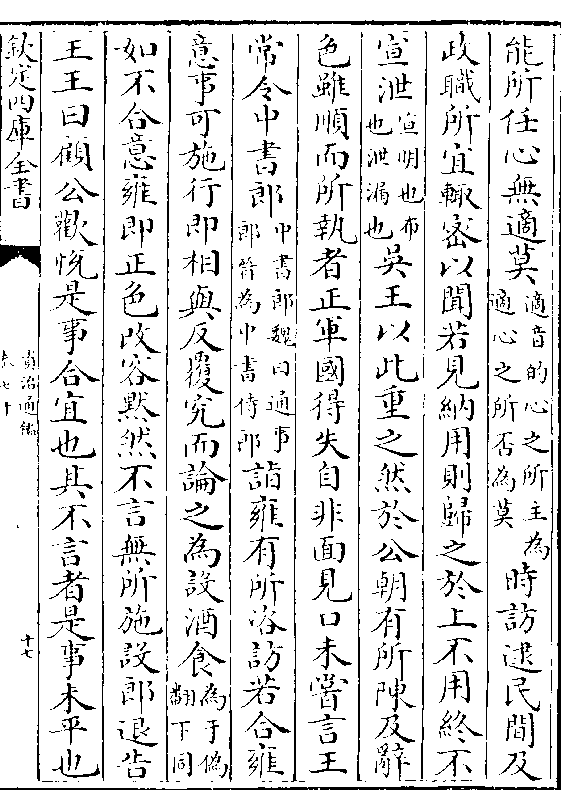 能所任心無適莫適音的心之所主為適心之所否為莫時訪逮民間及
政職所宜輙密以聞若見納用則歸之於上不用終不
宣泄宣明也布也泄漏也吳王以此重之然於公朝有所陳及辭
色雖順而所執者正軍國得失自非面見口未嘗言王
常令中書郎中書郎魏曰通事郎晉為中書侍郎詣雍有所咨訪若合雍
意事可施行即相與反覆究而論之為設酒食為于偽翻下同
如不合意雍即正色改容黙然不言無所施設郎退告
王王曰顧公歡悅是事合宜也其不言者是事未平也
欽定四庫全書
資治通鑑
卷七十
十七